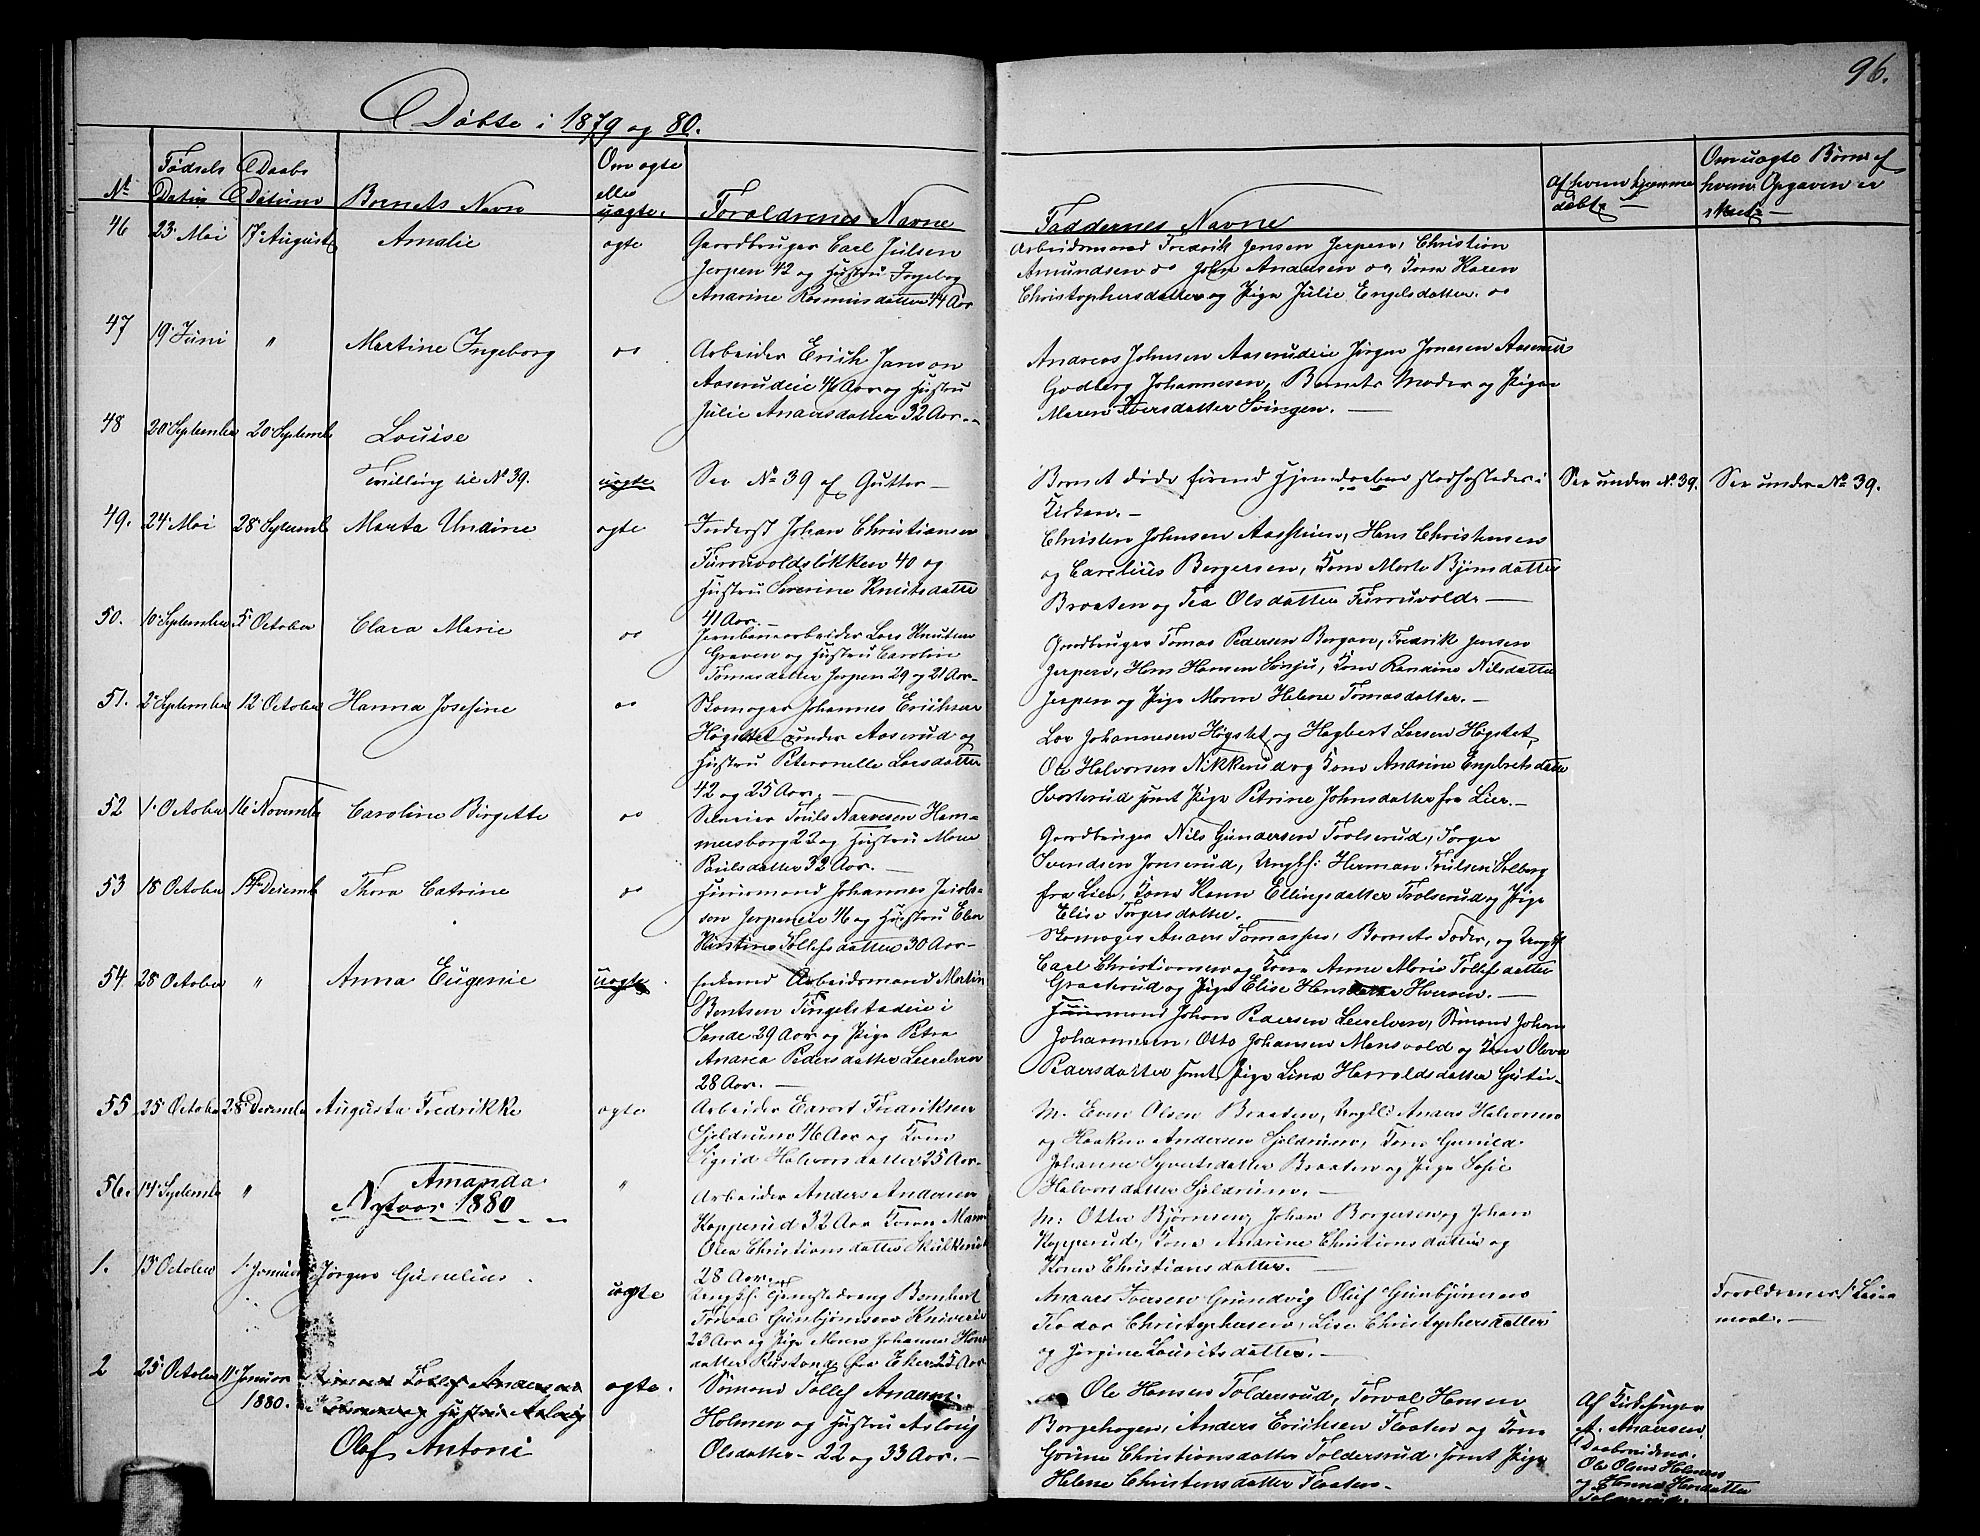 96.
Döbte i 1879 og 80.
No
Fødsels Datum
Daabs Datum
Barnets Navn
Om ægte eller uægte.
Forældrenes Navne
Faddernes Navne
Af hvem hjemme døbt
Om uægte Børn af hvem Opgaven er skeet
46 23 Mai 17 August Amalie ægte
Gaardbruger Carl Julsen
Jerpen 42 og Hustru Ingeborg
Anarine Rasmusdatter 44 Aar
Arbeidsmand Fredrik Jensen Jerpen, Christian
Amundsen oo John Andersen oo, Kone Karen
Christophersdatter og Pige Julie Engelsdatter. oo
47 19 Juni " Martine Ingeborg oo
Arbeider Erich Janson
Aaserudeie 46 Aar og Hustru
Julie Andersdatter 32 Aar.
Andreas Johnsen Aaserudeie Jørgen Jonasen Aaserud
Godberg Johannesen, Barnets Moder og Pigen
Maren Iversdatter Svingen.
48 20 September 20 Septemb Louise
Tvilling til No 39. uægte
See No 39 af Gutter
Barnet døde førend Hjemdaaben stadfæstedes i
Kirken.
See under No 39.
See under No 39.
49. 24 Mai 28 Septemb Marta Undine ægte
Inderst Johan Christiansen
Furruvoldsløkken 40 og
Hustru Severine Knutsdatter
41 Aar.
Christen Johnsen Aashuus, Hans Christensen
og Carelius Bergersen, Kone Marte Bjørnsdatter
Braaten og Tea Olsdatter Furruvold.
50. 10 September 5 October Clara Marie oo
Jernbanearbeider Lars Knutsen
Graven og Hustru Caroline
Tomasdatter Jerpen 29 og 21 Aar
Gaardbruger Tomas Pedersen Bergan, Fredrik Jensen
Jerpen, Hans Hansen Sønju, Kone Randine Nilsdatter
Jerpen og Pige Maren Helene Tomasdatter.
51. 2 September 12 October Hanna Josefine oo
Skomager Johannes Erichsen
Høgstet under Aaserud og
Hustru Peteronelle Larsdatter
42 og 25 Aar.
Lars Johannesen Høgstet og Hagbert Larsen Høgstet,
Ole Halvorsen Nikkerud og Kone Andrine Engebretsdatter
Svarterud samt Pige Petrine Johnsdatter fra Lier.
52 1 October 16 November Caroline Birgette oo
Smeier Truls Narvesen Ham-
mersborg 22 og Hustru Maren
Paulsdatter 32 Aar.
Gaardbruger Nils Gundersen Trolserud, Torger
Svendsen Jonserud, Ungkf: Herman Trulsen Solberg
fra Lier, Kone Karen Ellingsdatter Trolserud og Pige
Elise Torgersdatter.
53 18 October 14 Decemb Thora Catrine oo
Huusmand Johannes Jacob-
son Jerpeneie 46 og Hustru Elen
Kirstine Tollefsdatter 30 Aar
Skomager Anders Tomassen, Barnets Fader, og Ungkf
Carl Christiansen og Kone Anne Marie Tollefsdatter
Graaterud og Pige Elise Hansdatter Iversen.
54. 28 October " Anna Eugenie uægte
Enkemand Arbeidsmand Martin
Bentsen Tingelstadeie i
Sande 29 Aar og Pige Petra
Andrea Pedersdatter Leerelven
28 Aar.
Huusmand Johan Pedersen Leerelven, Sømand Johan
Johannesen, Otto Johansen Mensvold og Kone Olava
Pedersdatter samt Pige Lina Harroldsdatter
55 25 October 28 December Augusta Fredrikke ægte
Arbeider Edvart Fredriksen
Gjeldrum 46 Aar og Kone
Sigrid Halvorsdatter 25 Aar
M. Even Olsen Braaten, Ungkf: Anders Halvorsen
og Haaken Andersen Gjeldrum, Kone Gunild
Johanne Syvertsdatter Braaten og Pige Sofie
Halvorsdatter Gjeldrum.
56. 14 September " Amanda "
Arbeider Anders Andersen
Kopperud 32 Aar Kone Maren
Olea Christiansdatter
28 Aar.
M: Otter Bjørnsen, Johan Borgersen og Johan
Kopperud, Kone Anarine Christiansdatter og
Karen Christiansdatter.
Nytaar 1880
1. 13 October 1 Januar Jørgen Gunelius. uægte
Ungkf. Tjenestedreng Bernhart
Torval Gunbjørnsen Kniverud
23 Aar og Pige Maren Johanne Hans
datter Rustand fra Eker 25 Aar
Anders Iversen Grundvig Oluf Gunbjørnsen
Teodor Christophersen, Lise Christophersdatter
og Jørgine Lauritsdatter.
Forældrenes 1ste Leier-
maal.
2 25 October 11 Januar
1880.
Olaf Antoni
ægte.
Sømand Tollef Andersen
Holmen og Hustru Aslaug
Olsdatter 22 og 33 Aar.
Ole Hansen Toldersrud, Torval Hansen
Borgehagen, Anders Erichsen Floaten og Kone
Gorine Christiansdatter Toldersrud samt Pige
Helene Christensdatter Floaten.
Af Kirkesanger
A. Andersen
Daabsvidner
Ole Olsen Holmen
og Hanna Hansdatter